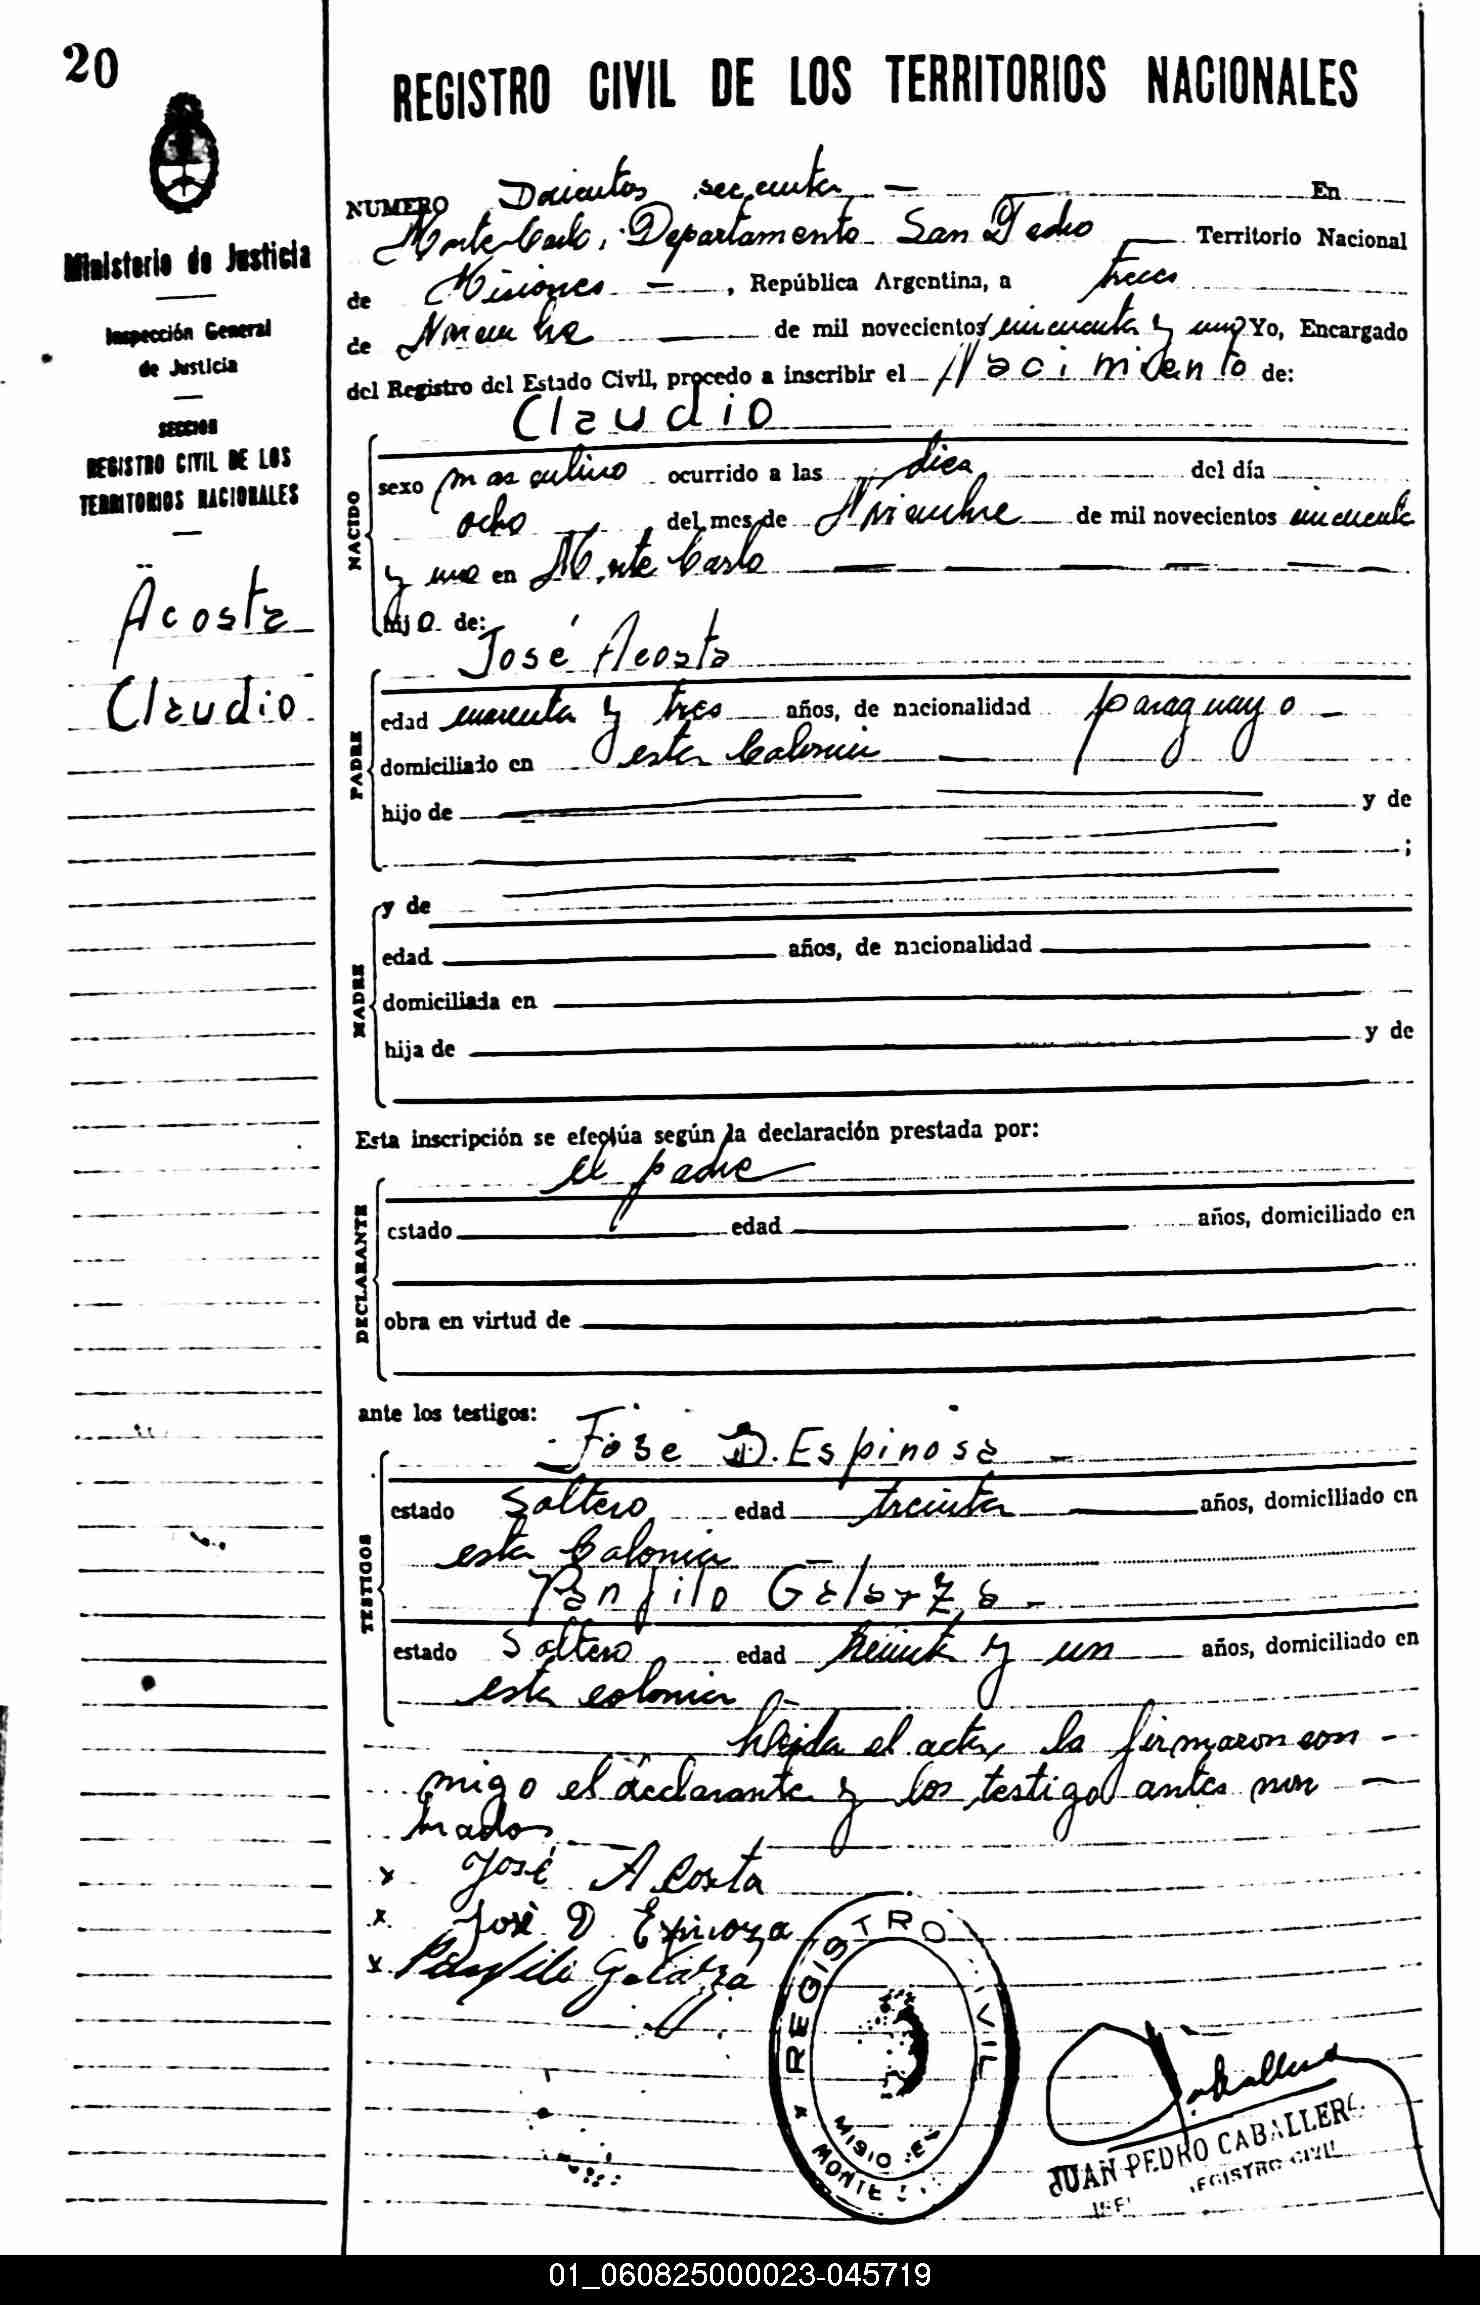 20
REGISTRO CIVIL DE LOS TERRITORIOS NACIONALES
Ministerio de Justicia
Inspección General
de Justicia
SECCION
REGISTRO CIVIL DE LOS
TERRITORIOS NACIONALES
Acosta
Claudio
NUMERO Docientos secenta, — En
Monte Carlo, Departamento San Pedro Territorio Nacional
de Misiones —, República Argentina, a trece
de Noviembre de mil novecientos cincuenta y uno Yo, Encargado
del Registro del Estado Civil, procedo a inscribir el Nacimiento de:
Claudio
NACIDO
sexo masculino ocurrido a las diez del día
ocho del mes de Noviembre de mil novecientos cincuenta
y uno en Monte Carlo
hijo de:
José Acosta
PADRE
edad cuarenta y tres años, de nacionalidad paraguayo —
domiciliado en esta Colonia
hijo de y de
;
y de
MADRE
edad años, de nacionalidad
domiciliada en
hija de y de
Esta inscripción se efectúa según la declaración prestada por:
el padre
DECLARANTE
estado edad años, domiciliado en
obra en virtud de
ante los testigos:
José D. Espinosa —
TESTIGOS
estado Soltero edad treinta años, domiciliado en
esta Colonia —
Panfilo Galarza —
estado Soltero edad treinta y un años, domiciliado en
esta colonia —
Leida el acta, la firmaron con —
migo el declarante y los testigo antes nom —
brados
x José Acosta
x José D Espinoza
x Panfilo Galarza
REGISTRO CIVIL
MISIONES
MONTE
Caballero
JUAN PEDRO CABALLERO
REGISTRO CIVIL
01_060825000023-045719